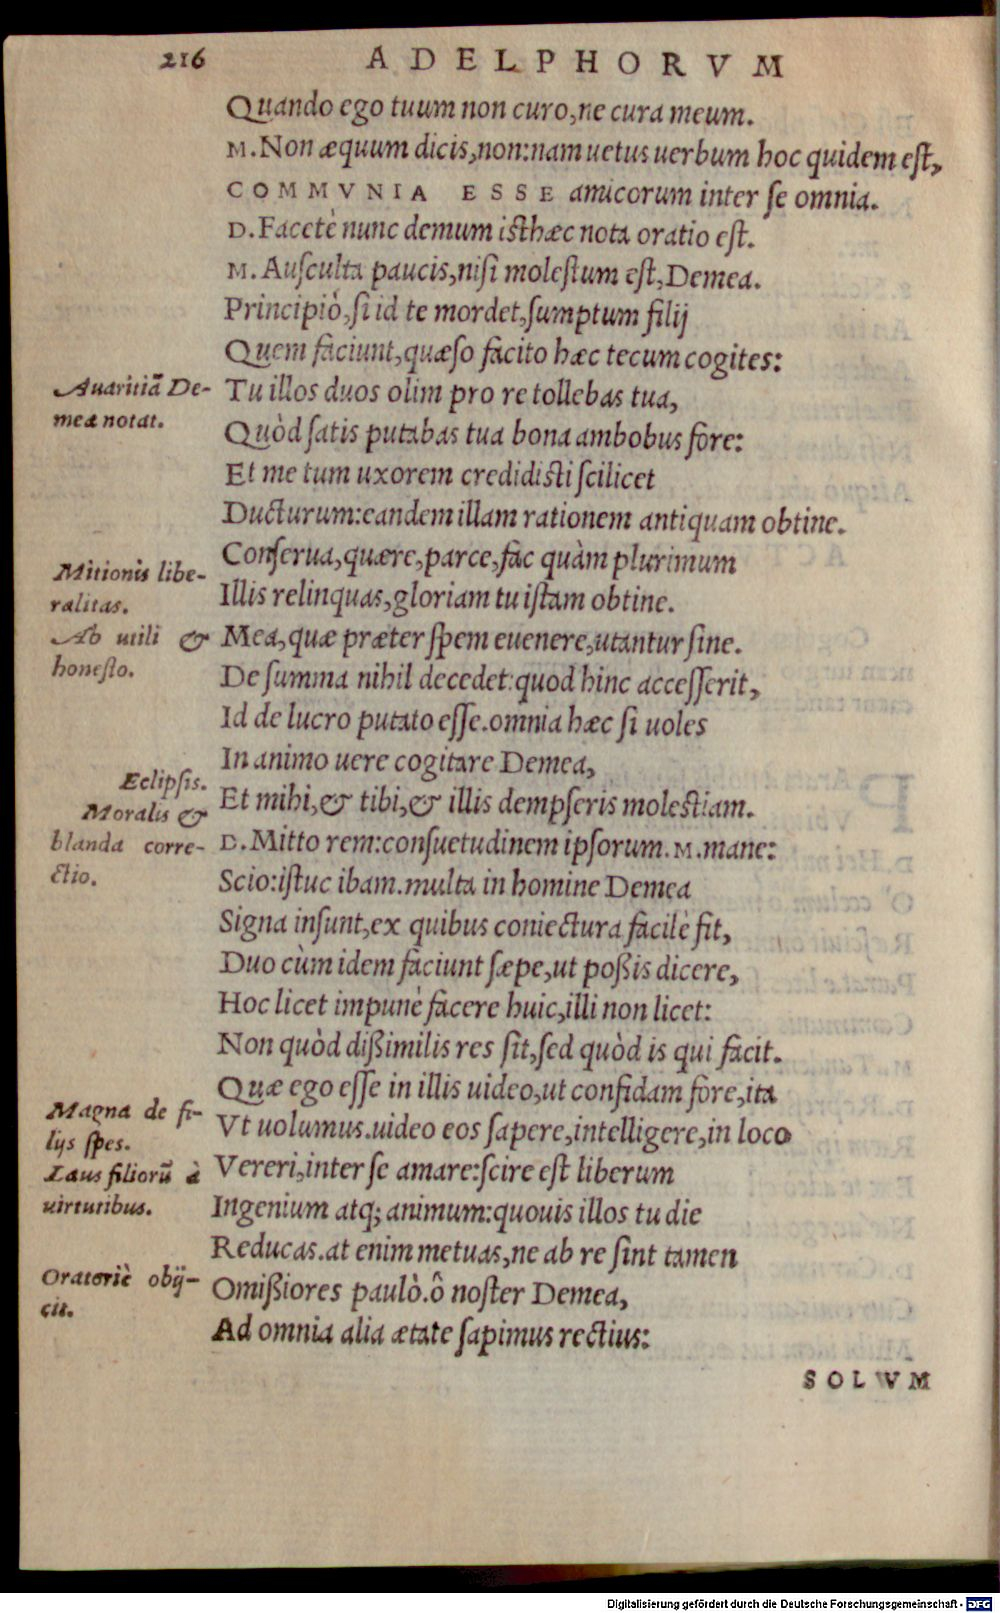 216 ADELPHORVM
Quando ego tuum non curo, ne cura meum.
M. Non æquum dicis, non: nam uetus uerbum hoc quidem eſt,
COMMVNIA ESSE amicorum inter ſe omnia.
D. Facetè nunc demum iſthæc nota oratio eſt.
M. Auſculta paucis, niſi moleſtum eſt, Demea.
Principiò, ſi id te mordet, ſumptum filij
Quem faciunt, quæſo facito hæc tecum cogites:
Auaritiã De-
mea notat.
Tu illos duos olim pro re tollebas tua,
Quòd ſatis putabas tua bona ambobus fore:
Et me tum uxorem credidiſti ſcilicet
Ducturum: eandem illam rationem antiquam obtine.
Conſerua, quære, parce, fac quàm plurimum
Mitionis libe-
ralitas.
Illis relinquas, gloriam tu iſtam obtine.
Ab utili &
honeſto.
Mea, quæ præter ſpem euenere, utantur ſine.
De ſumma nihil decedet: quod hinc acceſſerit,
Id de lucro putato eſſe. omnia hæc ſi uoles
In animo uere cogitare Demea,
Eclipſis.
Moralis &
blanda corre-
ctio.
Et mihi, & tibi, & illis dempſeris moleſtiam.
D. Mitto rem: conſuetudinem ipſorum. M. mane:
Scio: iſtuc ibam. multa in homine Demea
Signa inſunt, ex quibus coniectura facilè fit,
Duo cùm idem faciunt ſæpe, ut poßis dicere,
Hoc licet impunè facere huic, illi non licet:
Non quòd dißimilis res ſit, ſed quòd is qui facit.
Quæ ego eſſe in illis uideo, ut confidam fore, ita
Magna de fi-
lijs ſpes.
Vt uolumus. uideo eos ſapere, intelligere, in loco
Laus filiorũ à
uirtutibus.
Vereri, inter ſe amare: ſcire eſt liberum
Ingenium atq; animum: quouis illos tu die
Reducas. at enim metuas, ne ab re ſint tamen
Oratoriè obij-
cit.
Omißiores paulò. ô noſter Demea,
Ad omnia alia ætate ſapimus rectius:
SOLVM
Digitalisierung gefördert durch die Deutsche Forschungsgemeinschaft - DFG